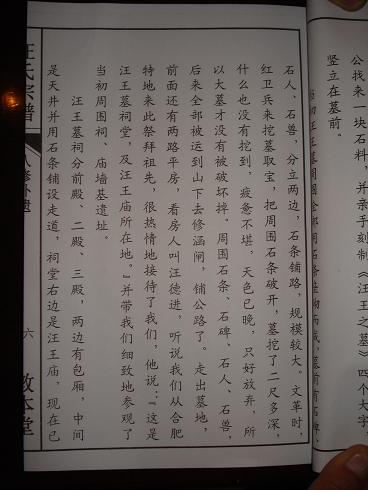 公找来一块石料，并亲手刻制《汪王之墓》四个大字，
竖立在墓前。
石人、石兽，分立两边，石条铺路，规模较大。文革时，
红卫兵来挖墓取宝，把周围石条破开，墓挖了二尺多深，
什么也没有挖到，疲惫不堪，天色已晚，只好放弃，所
以大墓才没有被破坏掉。周围石条、石碑、石人、石兽，
后来全部被运到山下去修涵闸，铺公路了。走出墓地，
前面还有两路平房，看房人叫汪德进，听说我们从合肥
特地来此祭拜祖先，很热情地接待了我们，他说："这是
汪王墓祠堂，及汪王庙所在地。"并带我们细致地参观了
当初周围祠、庙墙基遗址。
汪王墓祠分前殿、二殿、三殿，两边有包厢，中间
是天井并用石条铺设走道，祠堂右边是汪王庙，现在已
汪氏宗谱
八修补遗
六
敦本堂